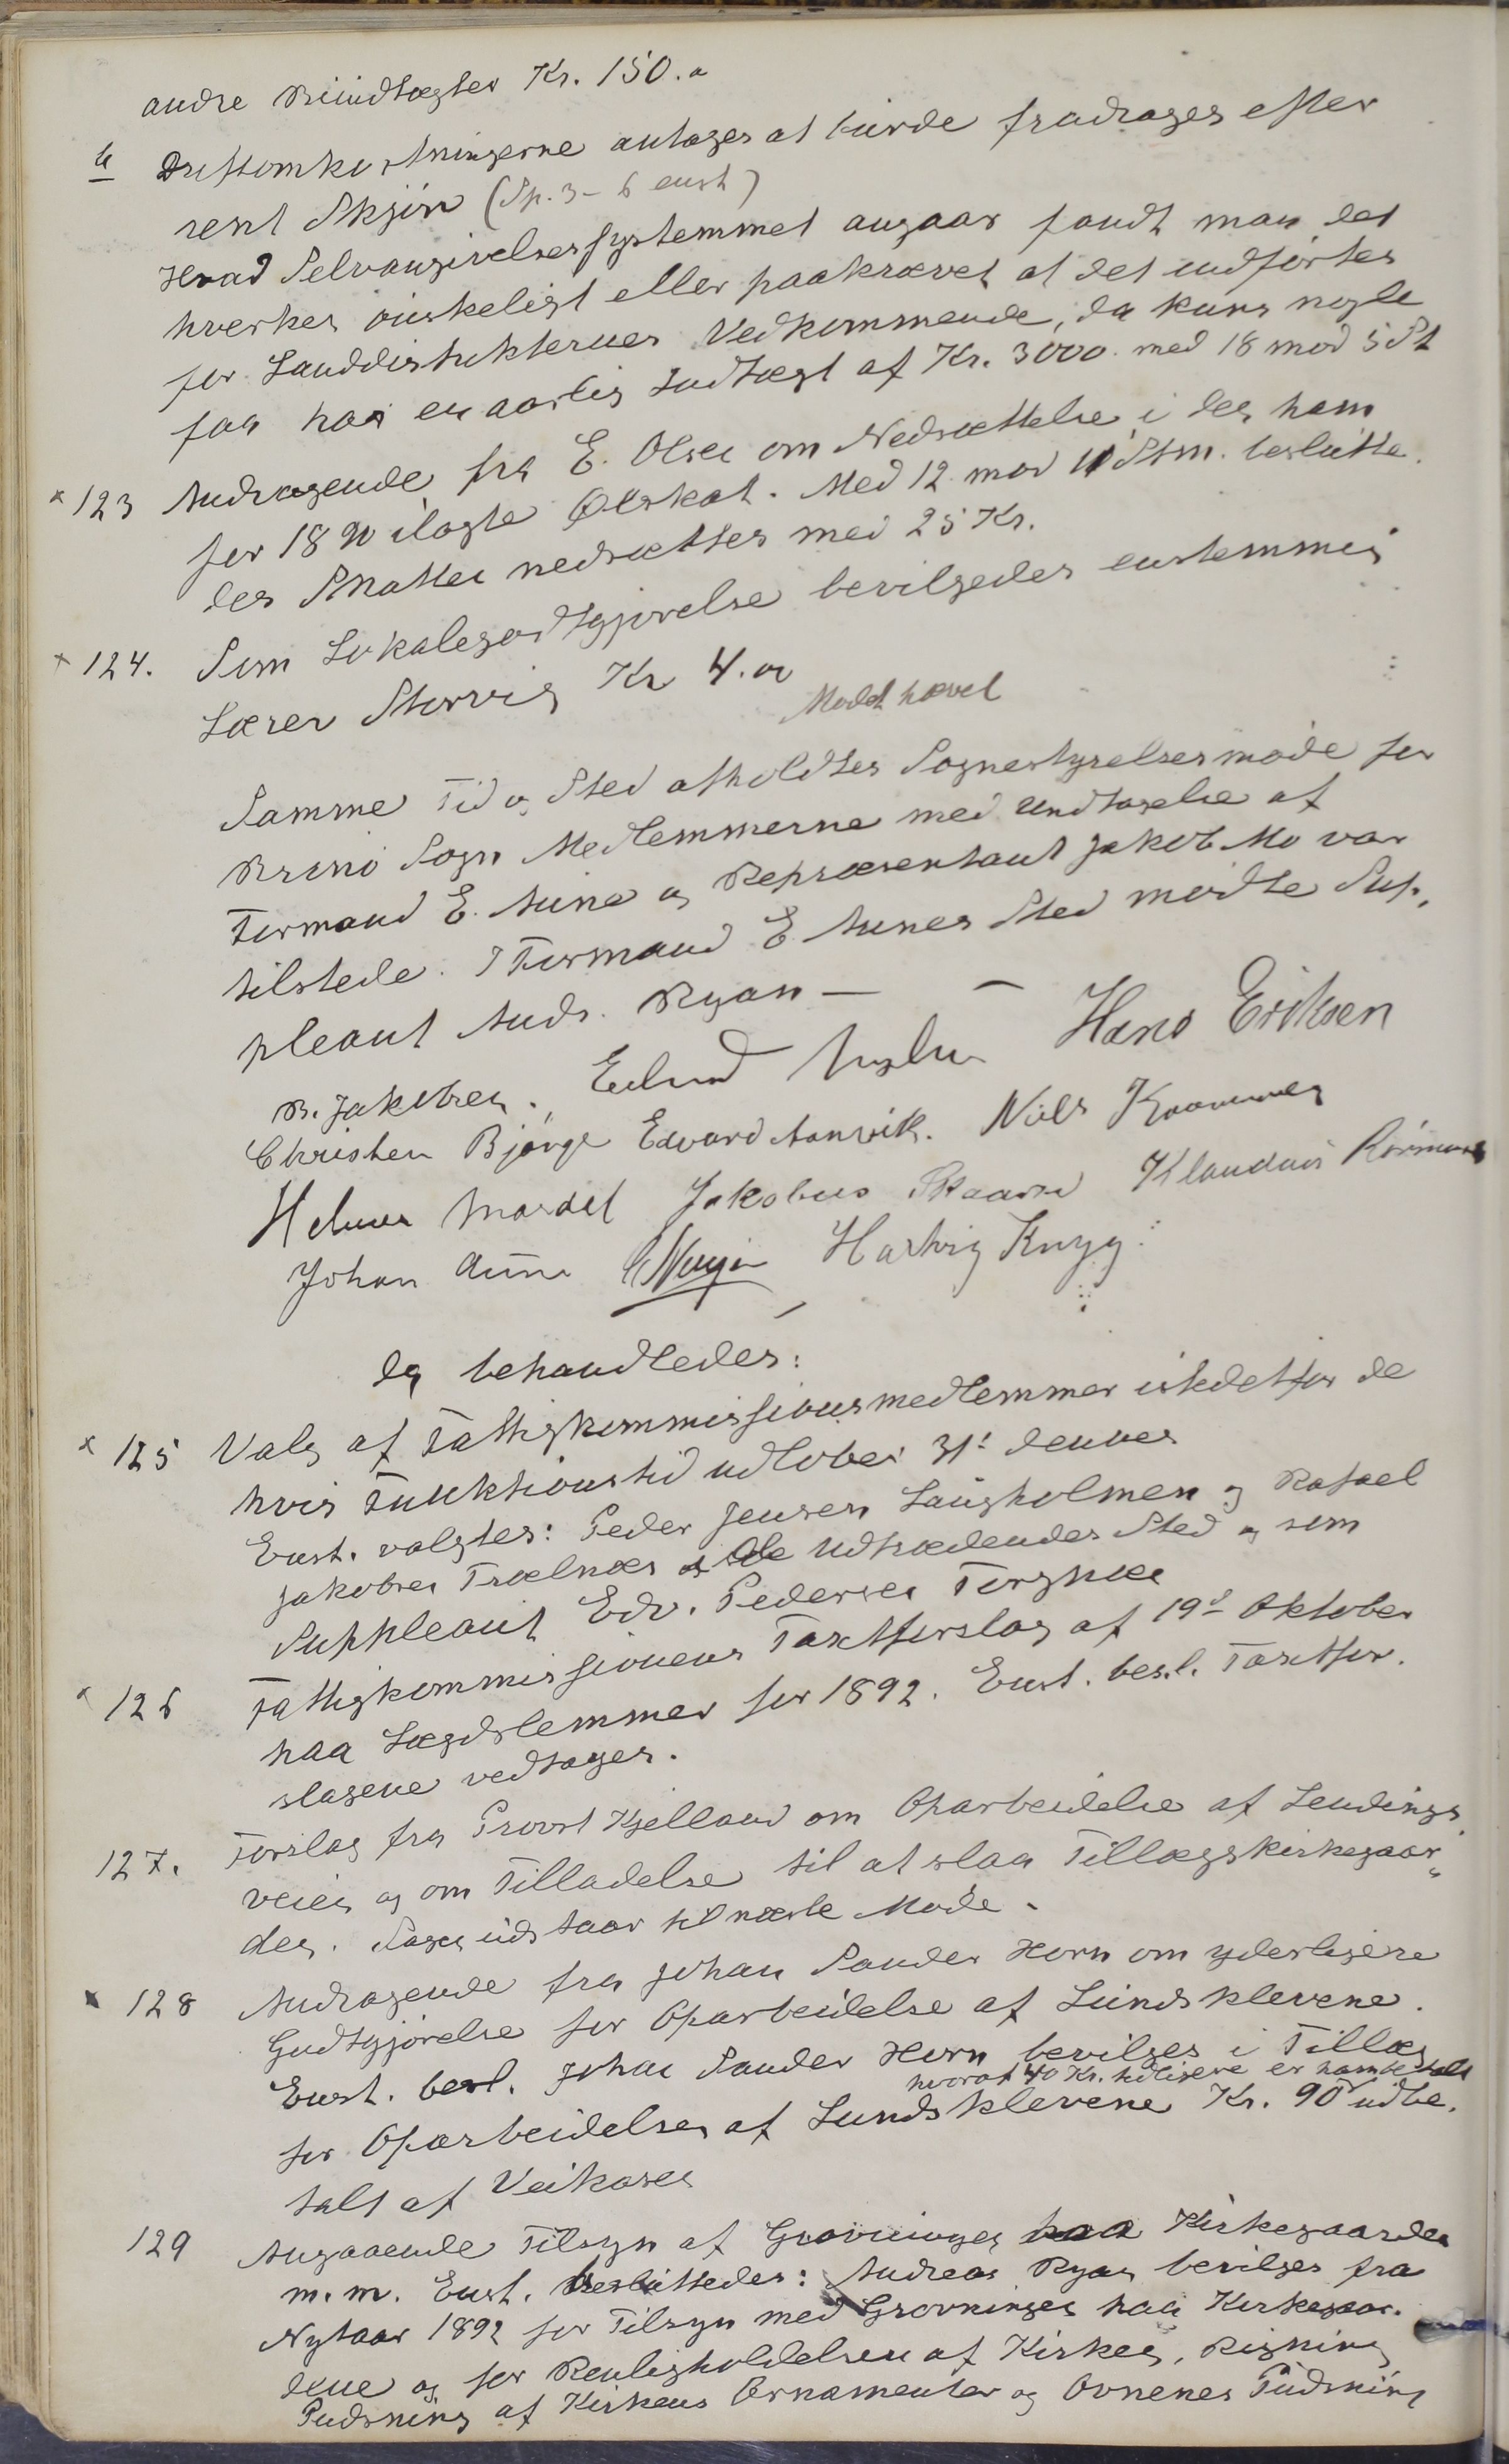 andre Biindtægter Kr. 150.
b Driftsomkostningerne antages at burde fradrages efter
rent Skjøn (Sp. 3 - 6 enst)
Hvad Selvangivelsessystemmet angaar fandt man det
hverken ønskeligt eller paakrævet at det indførtes
for Landdistrikternes Vedkommende, da kuns nogle
faa har en aarlig Indtægt af Kr. 3000. med 18 mod 5 St
x 123 Andragende fra E. Olsen om Nedsættelse i den ham
for 1890 ilagte Ølskat. Med 12 mod 11 Stm. beslutte.
des Skatten nedsættes med 25 Kr.
x 124. Som Lokalegodtgjørelse bevilgedes enstemmig
Lærer Storvig Kr 4.00
Mødet hævet
Samme Tid og Sted afholdtes Sognestyrelsesmøde for
Brønø Sogn Medlemmerne med Undtagelse af
Formand E. Aune og Repræsentant Jakob Mo var
tilstede. I Formand E Aunes Sted mødte Sup,
pleant Andr. Ryan —
B. Jakobsen. Edvard Hans Eriksen
Christen Bjørge Edvard Aanvik. Niels Kaarnes
Helmer Mardal Jakobus Skaarn Klaudius
Johan Aune Hartvig Knyg
da behandledes:
x 125 Valg af Fattigkommissionsmedlemmer istedetfor de
hvis Funktionstid udløber 31' dennes
Enst. valgtes: Peder Jensen Langholmen og Rafael
Jakobsen Trælnæs i de Udtrædendes Sted og som
Suppleant Edv. Pedersen Torgnæs
x 126 Fattigkommissionens Taxtforslag af 19d Oktober
paa Lægdslemmer for 1892. Enst. besl. Taxtfor.
slagene vedtages.
127. Forslag fra Provst Kjelland om Oparbeidelse af Lendings
veien og om Tilladelse til at slaa Tillægskirkegaar„
den. Sagen udstaar til næste Møde.
x 128 Andragende fra Johan Sander Horn om yderligere
Godtgjørelse for Oparbeidelse af Lundsklevene.
Enst. besl. Johan Sander Horn bevilges i Tillæg
hvoraf 40 Kr. tidligere er ham betalt
for Oparbeidelsen af Lundsklevene Kr. 90 udbe,
talt af Veikasen
129 Angaaende Tilsyn af Gravninger paa Kirkegaarden
m. m. Enst. besluttedes: Andreas Ryan bevilges fra
Nytaar 1892 for Tilsyn med Gravningen paa Kirkegaar.
dene og for Renligholdelsen af Kirken, Ringning
Pudsning af Kirkens Ornamenter og Ovnenes Pudsning